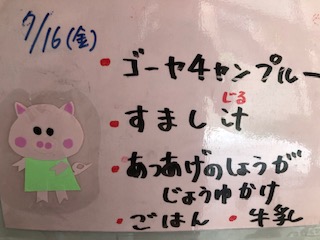 7/16(金)
・ゴーヤ4ャンプルー
・すまし汁
じる
・あつあげのしょうが
じょうゆかけ
・ごはん ・牛乳